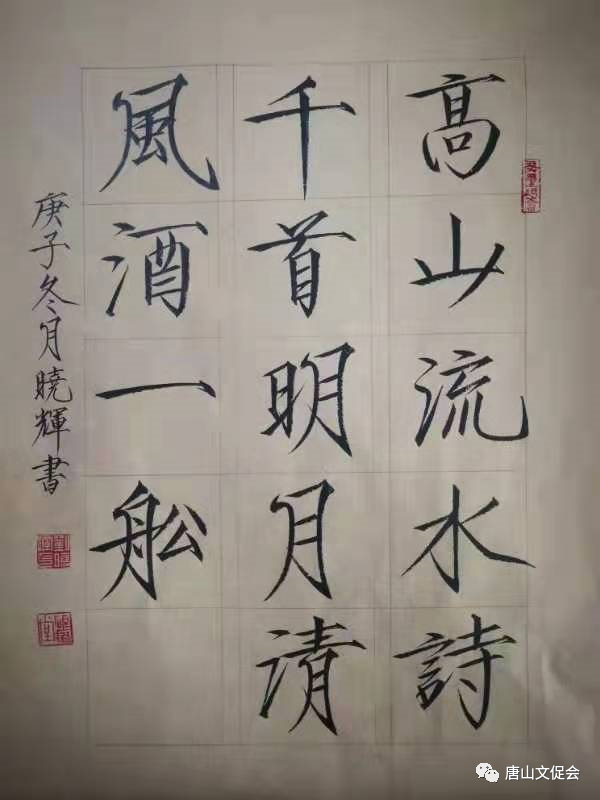 高山流水詩
千首明月清
風酒一舩
庚子冬月曉輝書
唐山文促会